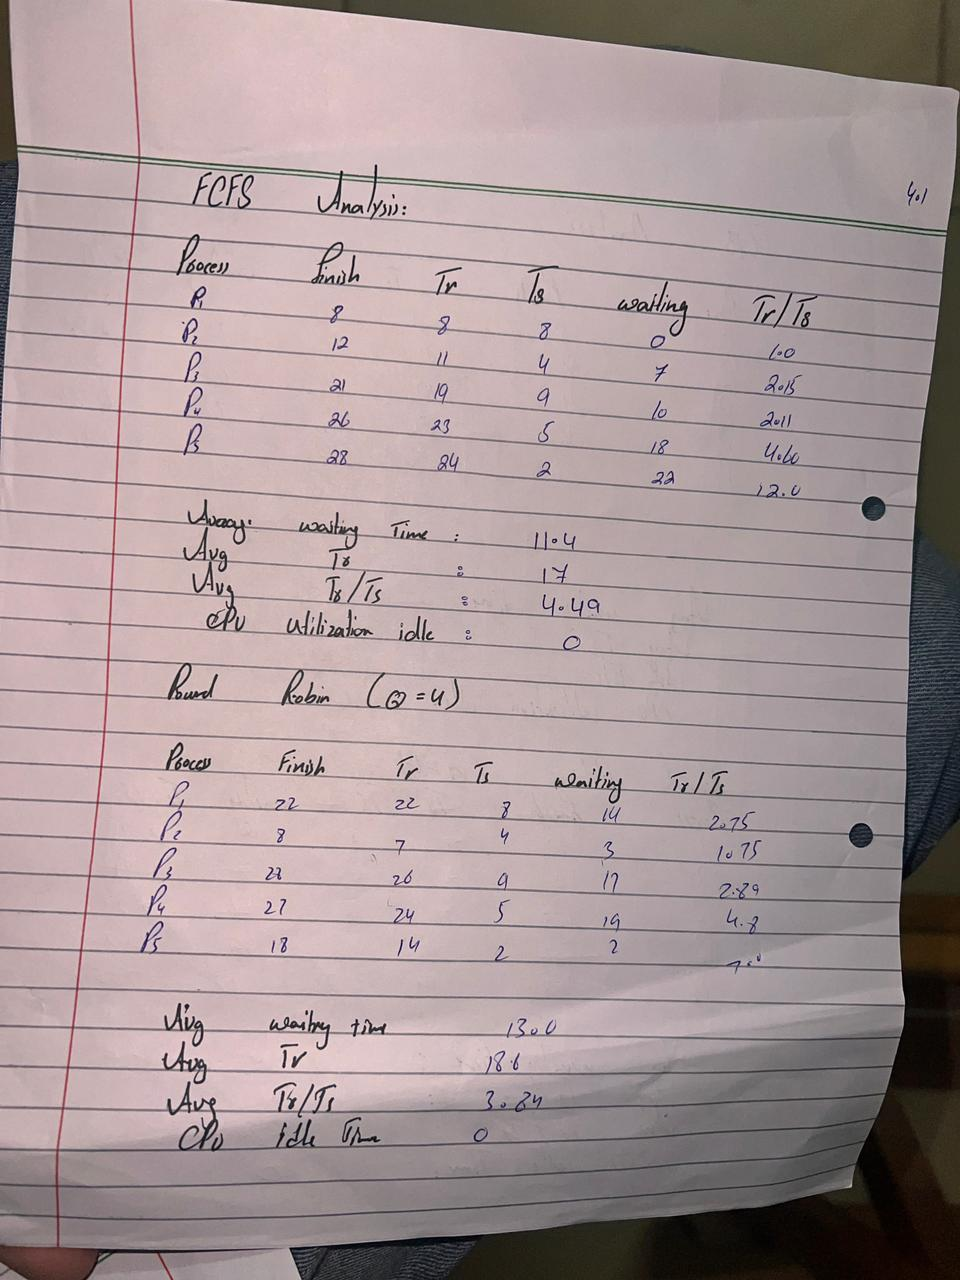 4.1
FCFS Analysis:
Process Finish Tr Ts waiting Tr/Ts
P1 8 8 8 0 1.0
P2 12 11 4 7 2.75
P3 21 19 9 10 2.11
P4 26 23 5 18 4.60
P5 28 24 2 22 12.0
waiting Time : 11.4
Avg Tr : 17
Avg Tr/Ts : 4.49
CPU Utilization idle : 0
Round Robin (Q=4)
Process Finish Tr Ts waiting Tr/Ts
P1 22 22 8 14 2.75
P2 8 7 4 3 1.75
P3 26 9 17 2.89
P4 27 24 5 19 4.8
P5 18 14 2 2
Avg waiting time 13.0
Avg Tr 18.6
Avg Tr/Ts 3.84
CPU idle Time 0